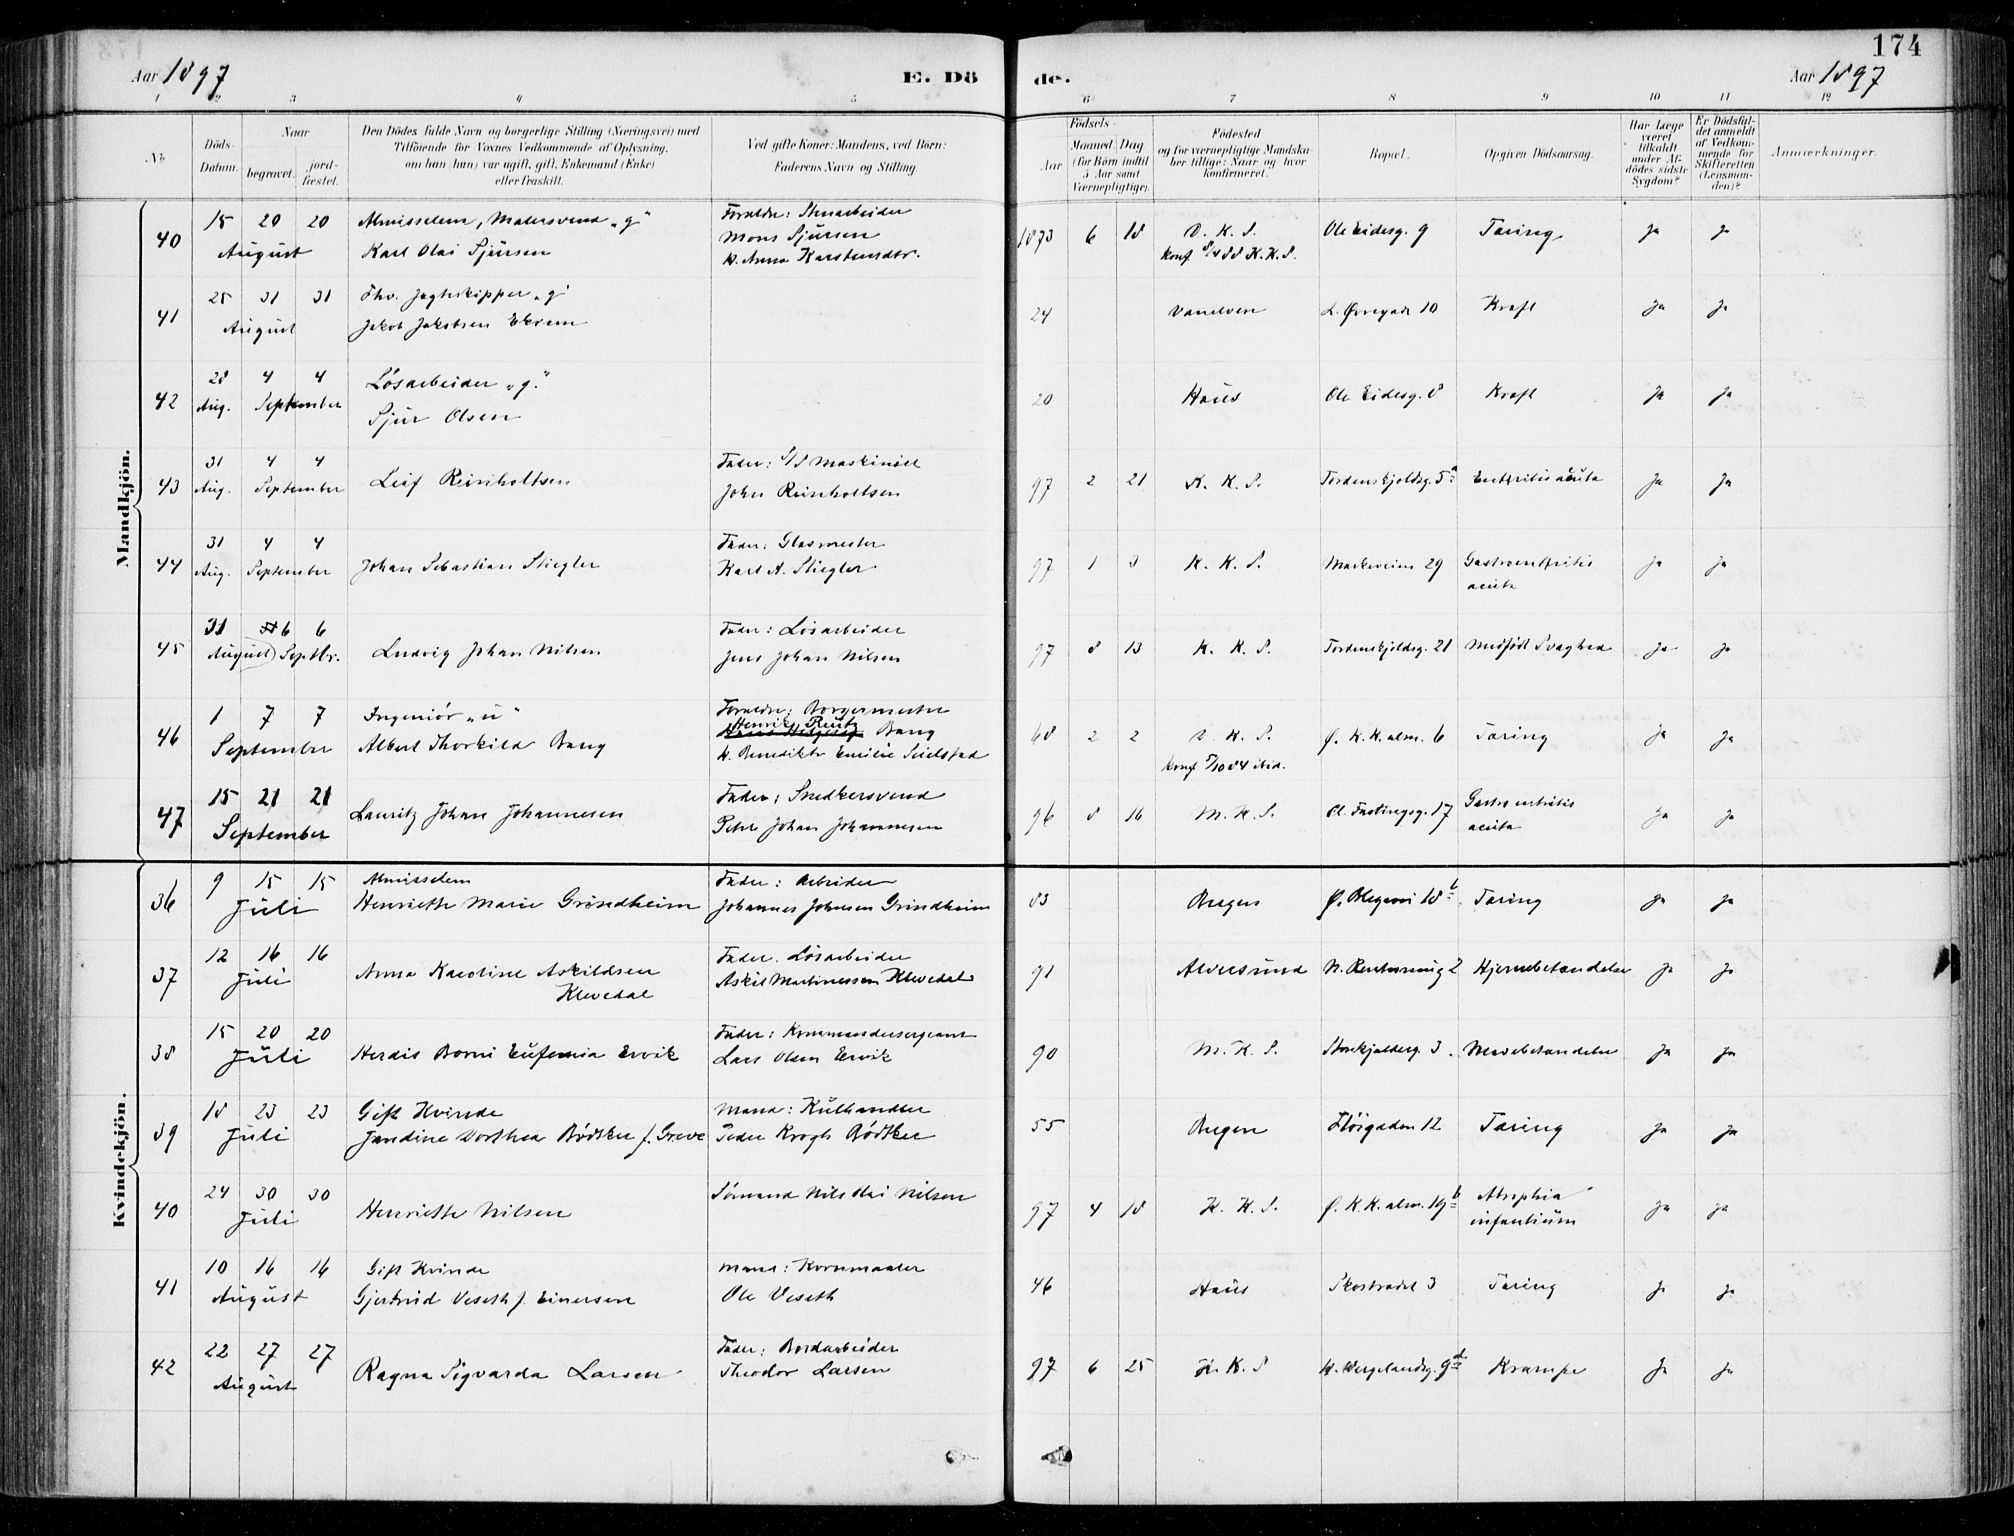 174
Aar 1897 E. Dö de. Aar 1897
1 2 3 4 5 6 7 8 9 10 11 12
No
Döds-Datum.
Naar
begravet.
jord-fæstet.
Den Dödes fulde Navn og borgerlige Stilling (Næringsvei) med
Tilföiende for Voxnes Vedkommende af Oplysning,
om han (hun) var ugift, gift, Enkemand (Enke)
eller fraskilt.
Ved gifte Koner: Mandens, ved Börn:
Faderens Navn og Stilling.
Födsels-
Aar
Maaned. Dag
(for Börn indtil
5 Aar samt
Værnepligtige).
Födested
og for værnepligtige Mandska-
ber tillige: Naar og hvor
konfirmeret.
Bopæl.
Opgiven Dödsaarsag.
Har Læge
været
tilkaldt
under Af-
dödes sidste
Sygdom?
Er Dödsfal-
det anmeldt
af Vedkom-
mende for
Skifteretten
(Lensman-
den)?
Anmærkninger.
Mandkjön.
40 15 20 20 August Almisselem, Malersvend „g“
Karl Olai Sjursen
Forældre: Stenarbeider
Mons Sjursen
h. Anna Karstensdtr.
1873 6 18 D. K. S.
Konf 8/4 88 K.K.S.
Ole Eidesg. 9 Tæring Ja Ja
41 25 31 31 August Fhv. Jagtskipper „g“
Jakob Jakobsen Ekrem
24 Vanelven L. Øvregade 10 Kræft Ja Ja
42 28 Aug. 4 4 September Løsarbeider „g.“
Sjur Olsen
20 Haus Ole Eidesg. 8 Kræft Ja Ja
43 31 Aug. 4 4 September Leif Reinholtsen
Fader: S/S Maskinist
John Reinholtsen
97 2 21 K. K. S. Tordenskjoldsg. 5a Enteritis acuta Ja Ja
44 31 Aug. 4 4 September Johan Sebastian Stiegler
Fader: Glasmester
Karl A. Stiegler
97 1 3 K. K. S. Markeveien 29 Gastroenteritis
acuta Ja Ja
45 31 August 6 6 Septbr. Ludvig Johan Nilsen
Fader: Løsarbeider
Jens Johan Nilsen
97 8 13 K. K. S. Tordenskjoldsg. 21 Medfødt Svaghed Ja Ja
46 1 7 7 September Ingeniør „u“
Albert Thorkild Bang
Forældre: Borgermester
Henrik Reutz Bang
h. Benedikte Emilie Seidelstad
68 2 2 D. K. S.
Konf 5/10 84 ibid.
Ø. K. K. alm. 6 Tæring Ja Ja
47 15 21 21 September Lauritz Johan Johannesen
Fader: Snedkersvend
Peter Johan Johannesen
96 8 16 M. K. S. Cl. Fastingsg. 17 Gastroenteritis
acuta Ja Ja
Kvindekjön.
36 9 15 15 Juli Almisselem
Henriette Marie Grindheim
Fader: Arbeider
Johannes Johnsen Grindheim
83 Bergen Ø. Blegevei 18b Tæring Ja Ja
37 12 16 16 Juli Anna Karoline Askildsen
Klevedal
Fader: Løsarbeider
Askil Martinessen Klevedal
91 Alversund 2 Hjernebetændelse Ja Ja
38 15 20 20 Juli Herdis Borni Eufemia Ervik
Fader: Kommandersergeant
Lars Olsen Ervik
90 M. K. S. 3 Mavebetændelse Ja Ja
39 18 23 23 Juli Gift Kvinde
Jandine Dorthea Bødtker f. Greve
Mand: Kulhandler
Peder Krogh Bødtker
55 Bergen Fløigaden 12 Tæring Ja Ja
40 24 30 30 Juli Henriette Nilsen
Sømand Nils Olai Nilsen
97 4 18 K. K. S. Ø. K. K. alm. 19b Atrophia
infantium Ja Ja
41 10 16 16 August Gift Kvinde
Gjertrud Veseth f. Einersen
Mand: Kornmaaler
Ole Veseth
46 Haus Skostrædet 3 Tæring Ja Ja
42 22 27 27 August Ragna Sigvarda Larsen
Fader: Bordarbeider
Theodor Larsen
97 6 25 K. K. S H. Wergelandsg. 9d Krampe Ja Ja